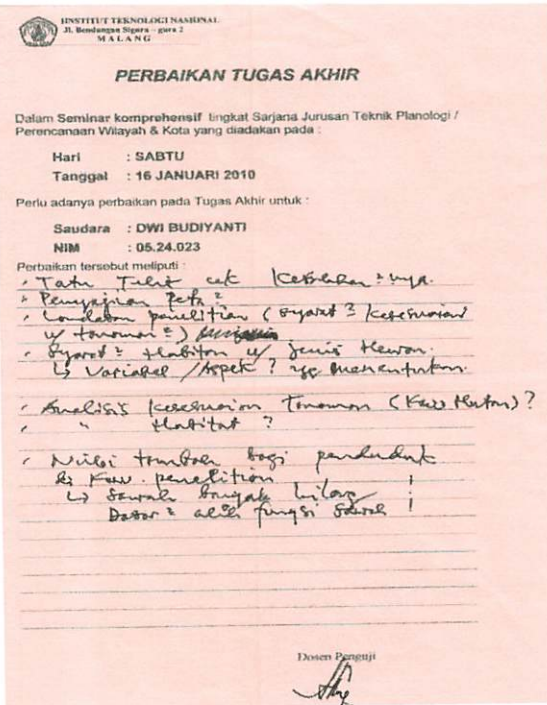 INSTITUT TEKNOLOGI NASIONAL
Jl. Bendungan Sigura - gura 2
MALANG
PERBAIKAN TUGAS AKHIR
Dalam Seminar komprehensif tingkat Sarjana Jurusan Teknik Planologi /
Perencanaan Wilayah & Kota yang diadakan pada :
Hari : SABTU
Tanggal : 16 JANUARI 2010
Perlu adanya perbaikan pada Tugas Akhir untuk :
Saudara : DWI BUDIYANTI
NIM : 05.24.023
Perbaikan tersebut meliputi :
Tata Tulis cek
Penyajian Peta ²
Landasan penelitian ( syarat ² kesesuaian
u/ tanaman ² )
Syarat ² Habitat u/ jenis Hewan.
↳ Variabel / Aspek ? yg menentukan.
Analisis kesesuaian Tanaman (Kaw Hutan) ?
" Habitat ?
Nilai tambah bagi penduduk
di Kaw. penelitian
↳ Sawah banyak hilang !
Dasar ² alih fungsi sawah !
Dosen Penguji